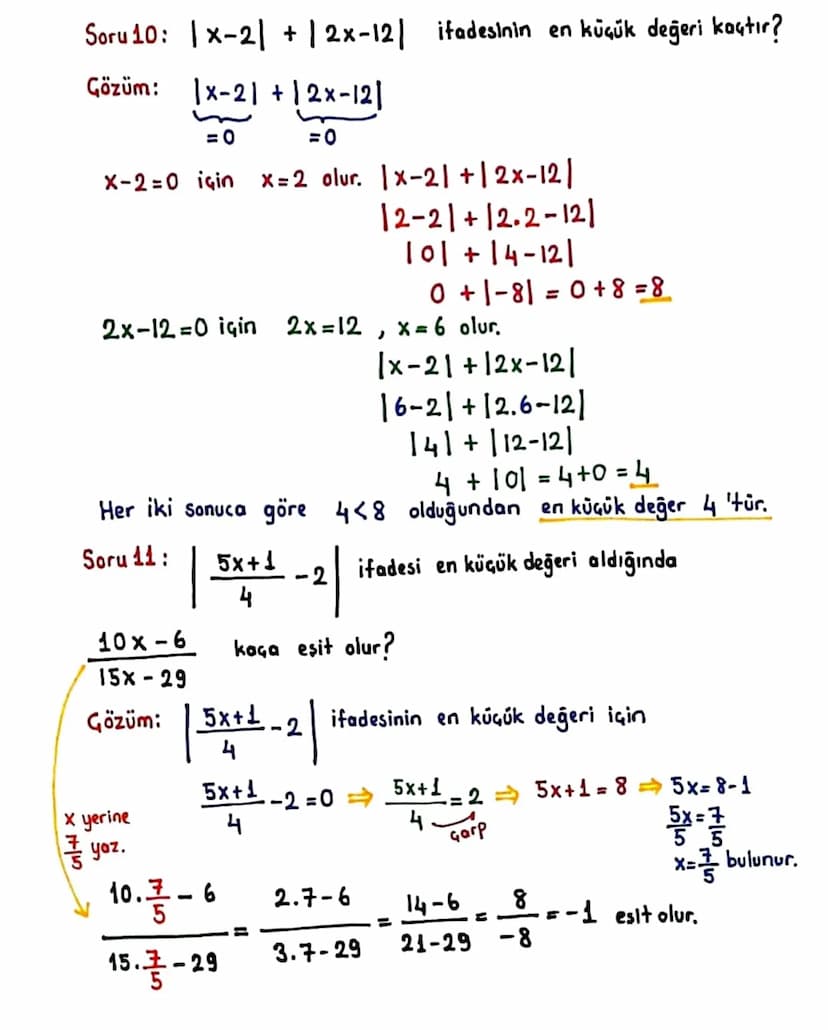 Soru 10: |x-2| + |2x-12| ifadesinin en küçük değeri kaçtır?
Çözüm: |x-2| + |2x-12|
=0 =0
x-2=0 için x=2 olur. |x-2| + |2x-12|
|2-2| + |2.2-12|
|0| + |4-12|
0 + |-8| = 0+8 =8
2x-12=0 için 2x=12 , x=6 olur.
|x-2| + |2x-12|
|6-2| + |2.6-12|
|4| + |12-12|
4 + |0| = 4+0 = 4
Her iki sonuca göre 4<8 olduğundan en küçük değer 4'tür.
Soru 11: |5x+1/4 - 2| ifadesi en küçük değeri aldığında
10x-6/15x-29 kaça eşit olur?
Çözüm: |5x+1/4 - 2| ifadesinin en küçük değeri için
5x+1/4 -2 =0 ⇒ 5x+1/4 = 2 ⇒ 5x+1=8 ⇒ 5x=8-1
çarp
5x/5=7/5
x=7/5 bulunur.
x yerine
7/5 yaz.
10.7/5 - 6/15.7/5 - 29 = 2.7-6/3.7-29 = 14-6/21-29 = 8/-8 = -1 eşit olur.